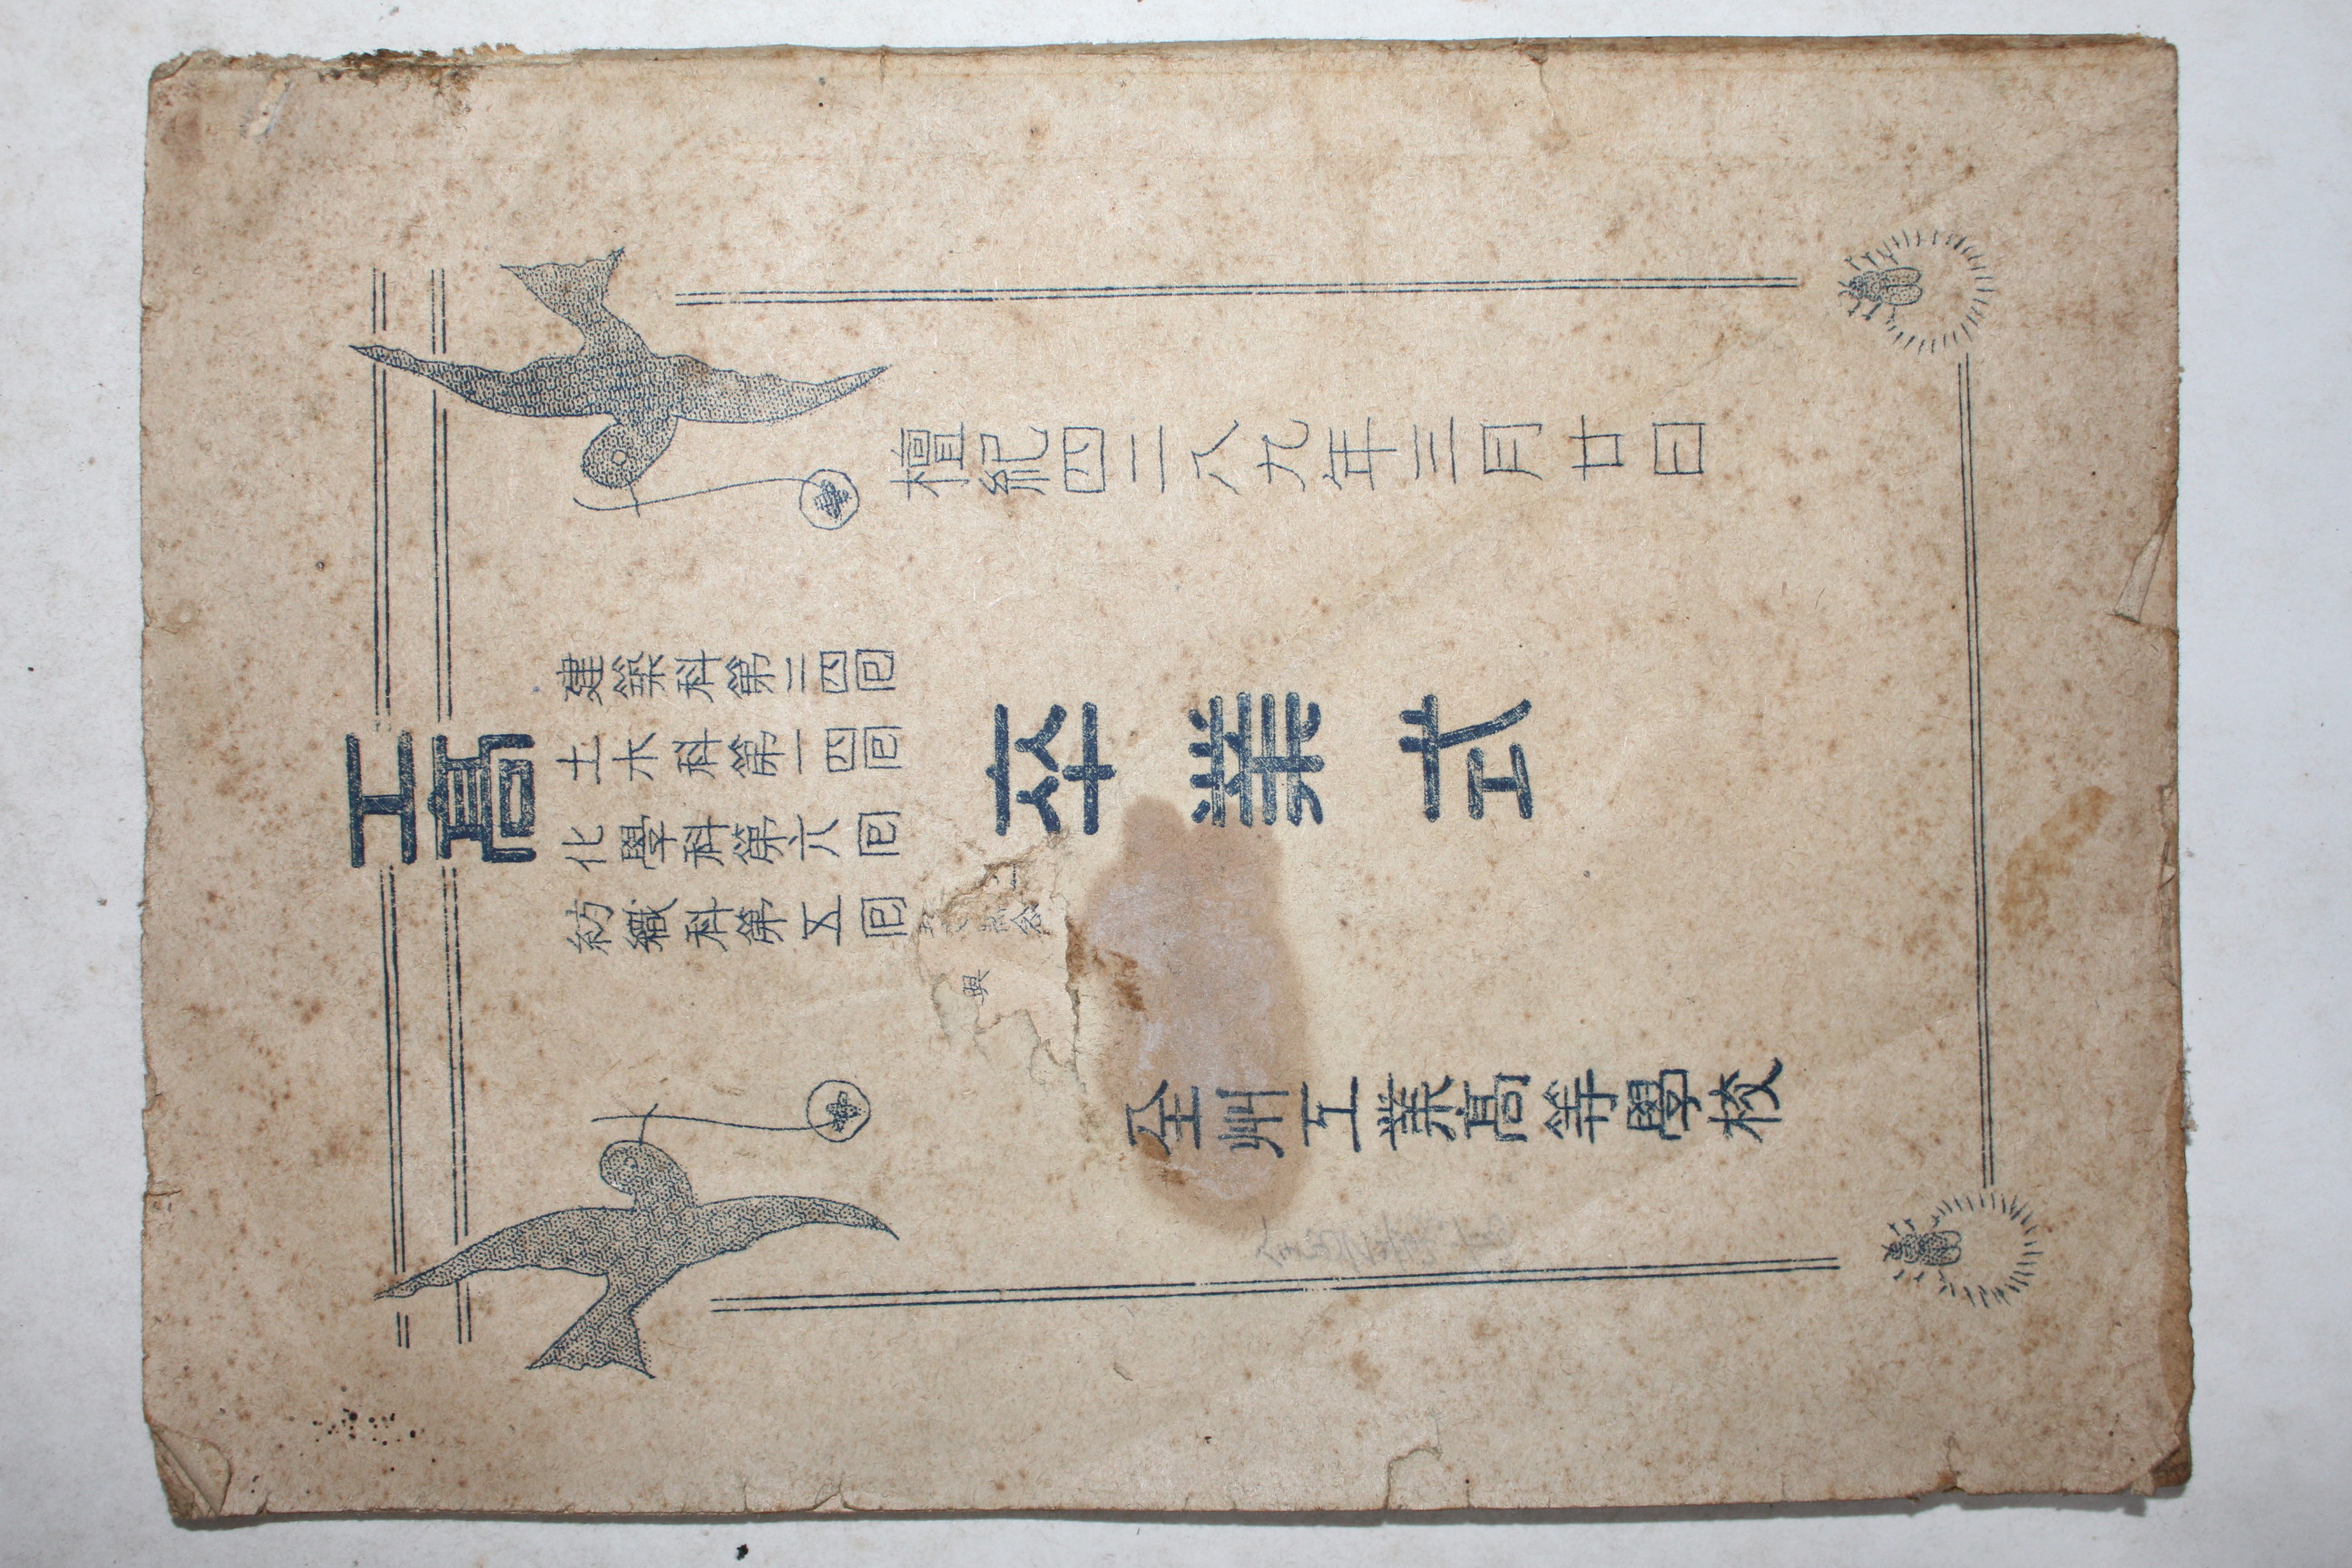 工高
檀紀四二八九年三月廿日
建築科第二四回
土木科第一四回
化學科第六回
紡織科第五回
卒業式
全州工業高等學校